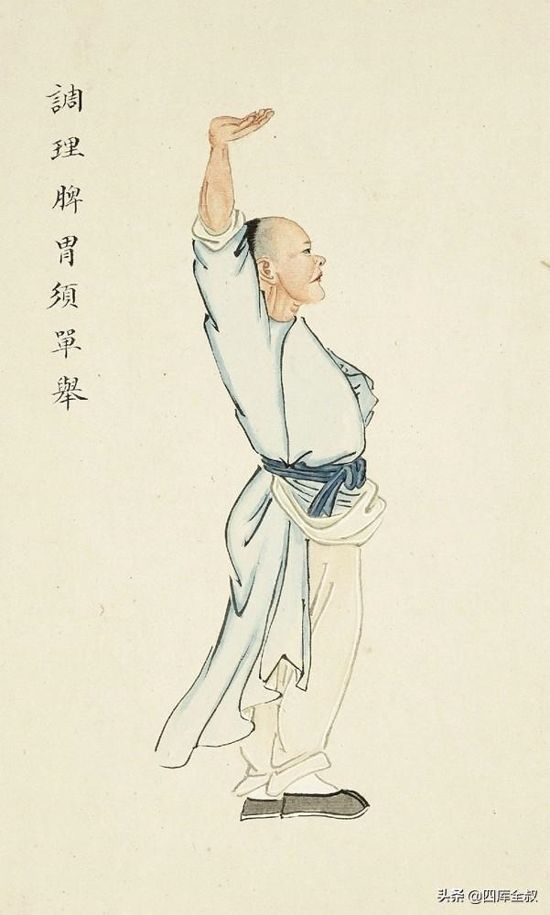 調理脾胃須單舉
头条 @四库全叔